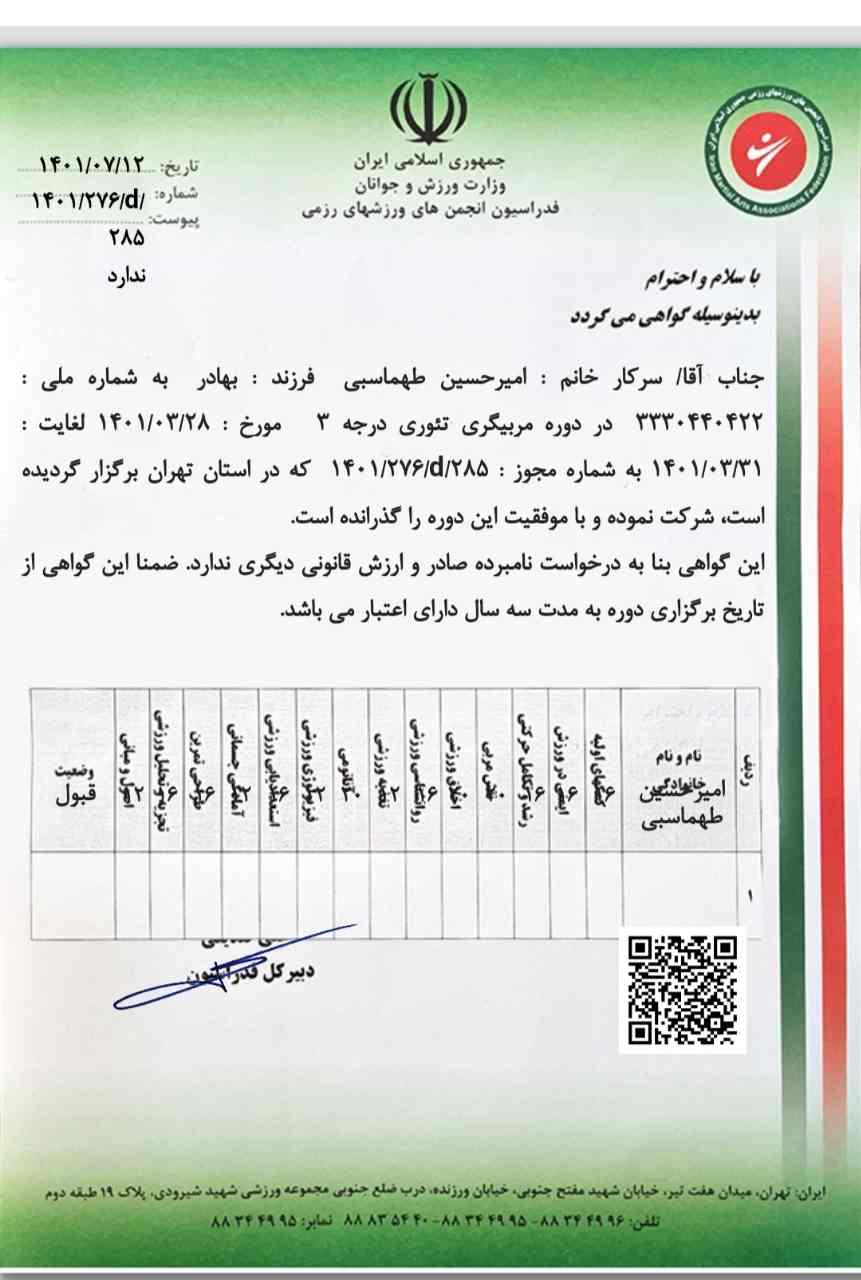 جمهوری اسلامی ایران
وزارت ورزش و جوانان
فدراسیون انجمن های ورزشهای رزمی
Martial Arts Associations Federation
تاریخ: ۱۴۰۱/۰۷/۱۲
شماره: ۱۴۰۱/۲۷۶/d/
۲۸۵
پیوست:
ندارد
با سلام و احترام
بدینوسیله گواهی می گردد
جناب آقا/ سرکار خانم : امیرحسین طهماسبی فرزند : بهادر به شماره ملی :
۳۳۳۰۴۴۰۴۲۲ در دوره مربیگری تئوری درجه ۳ مورخ : ۱۴۰۱/۰۳/۲۸ لغایت :
۱۴۰۱/۰۳/۳۱ به شماره مجوز : ۱۴۰۱/۲۷۶/d/۲۸۵ که در استان تهران برگزار گردیده
است، شرکت نموده و با موفقیت این دوره را گذرانده است.
این گواهی بنا به درخواست نامبرده صادر و ارزش قانونی دیگری ندارد. ضمنا این گواهی از
تاریخ برگزاری دوره به مدت سه سال دارای اعتبار می باشد.
ردیف
نام و نام
خانوادگی
امیرحسین
طهماسبی
کمکهای اولیه
ایمنی در ورزش
رشد و تکامل حرکتی
نقش مربی
اخلاق ورزشی
روانشناسی ورزشی
تغذیه ورزشی
آناتومی
فیزیولوژی ورزشی
استعدادیابی ورزشی
آمادگی جسمانی
طراحی تمرین
تجزیه و تحلیل ورزشی
اصول و مبانی
وضعیت
قبول
۱
دبیرکل فدراسیون
ایران: تهران، میدان هفت تیر، خیابان شهید مفتح جنوبی، خیابان ورزنده، درب ضلع جنوبی مجموعه ورزشی شهید شیرودی، پلاک ۱۹ طبقه دوم
تلفن: ۹۶ ۴۹ ۳۴ ۸۸- ۹۵ ۴۹ ۳۴ ۸۸- ۴۰ ۵۴ ۸۳ ۸۸ نمابر: ۹۵ ۴۹ ۳۴ ۸۸